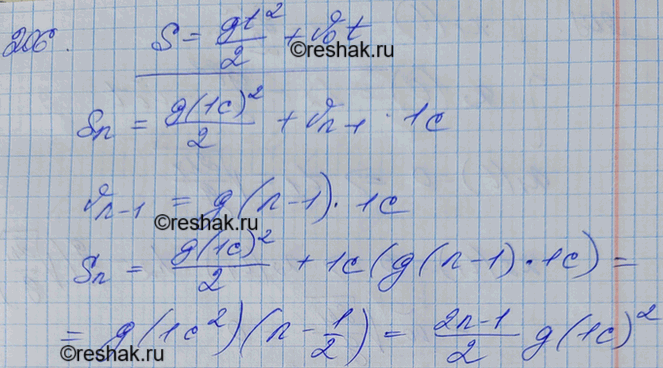 206. S = gt²/2 + v₀t
©reshak.ru
Sn = g(1с)²/2 + vn-1 · 1с
vn-1 = g(n-1) · 1с
©reshak.ru
Sn = g(1с)²/2 + 1с(g(n-1) · 1с) =
= g(1с²)(n - 1/2) = 2n-1/2 g(1с)²
©reshak.ru